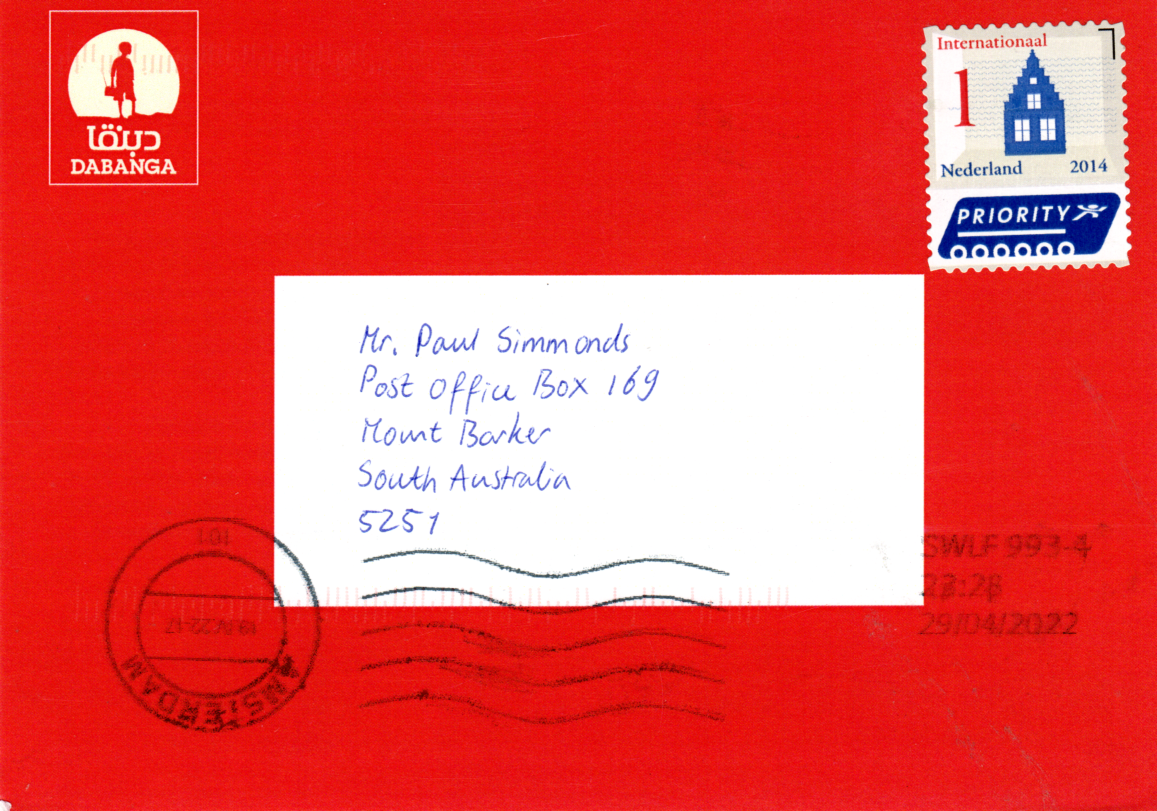 دبنقا
DABANGA
Internationaal
1
Nederland 2014
PRIORITY
Mr. Paul Simmonds
Post Office Box 169
Mount Barker
South Australia
5251
SWLF 993-4
23:28
29/04/2022
101
AMSTERDAM